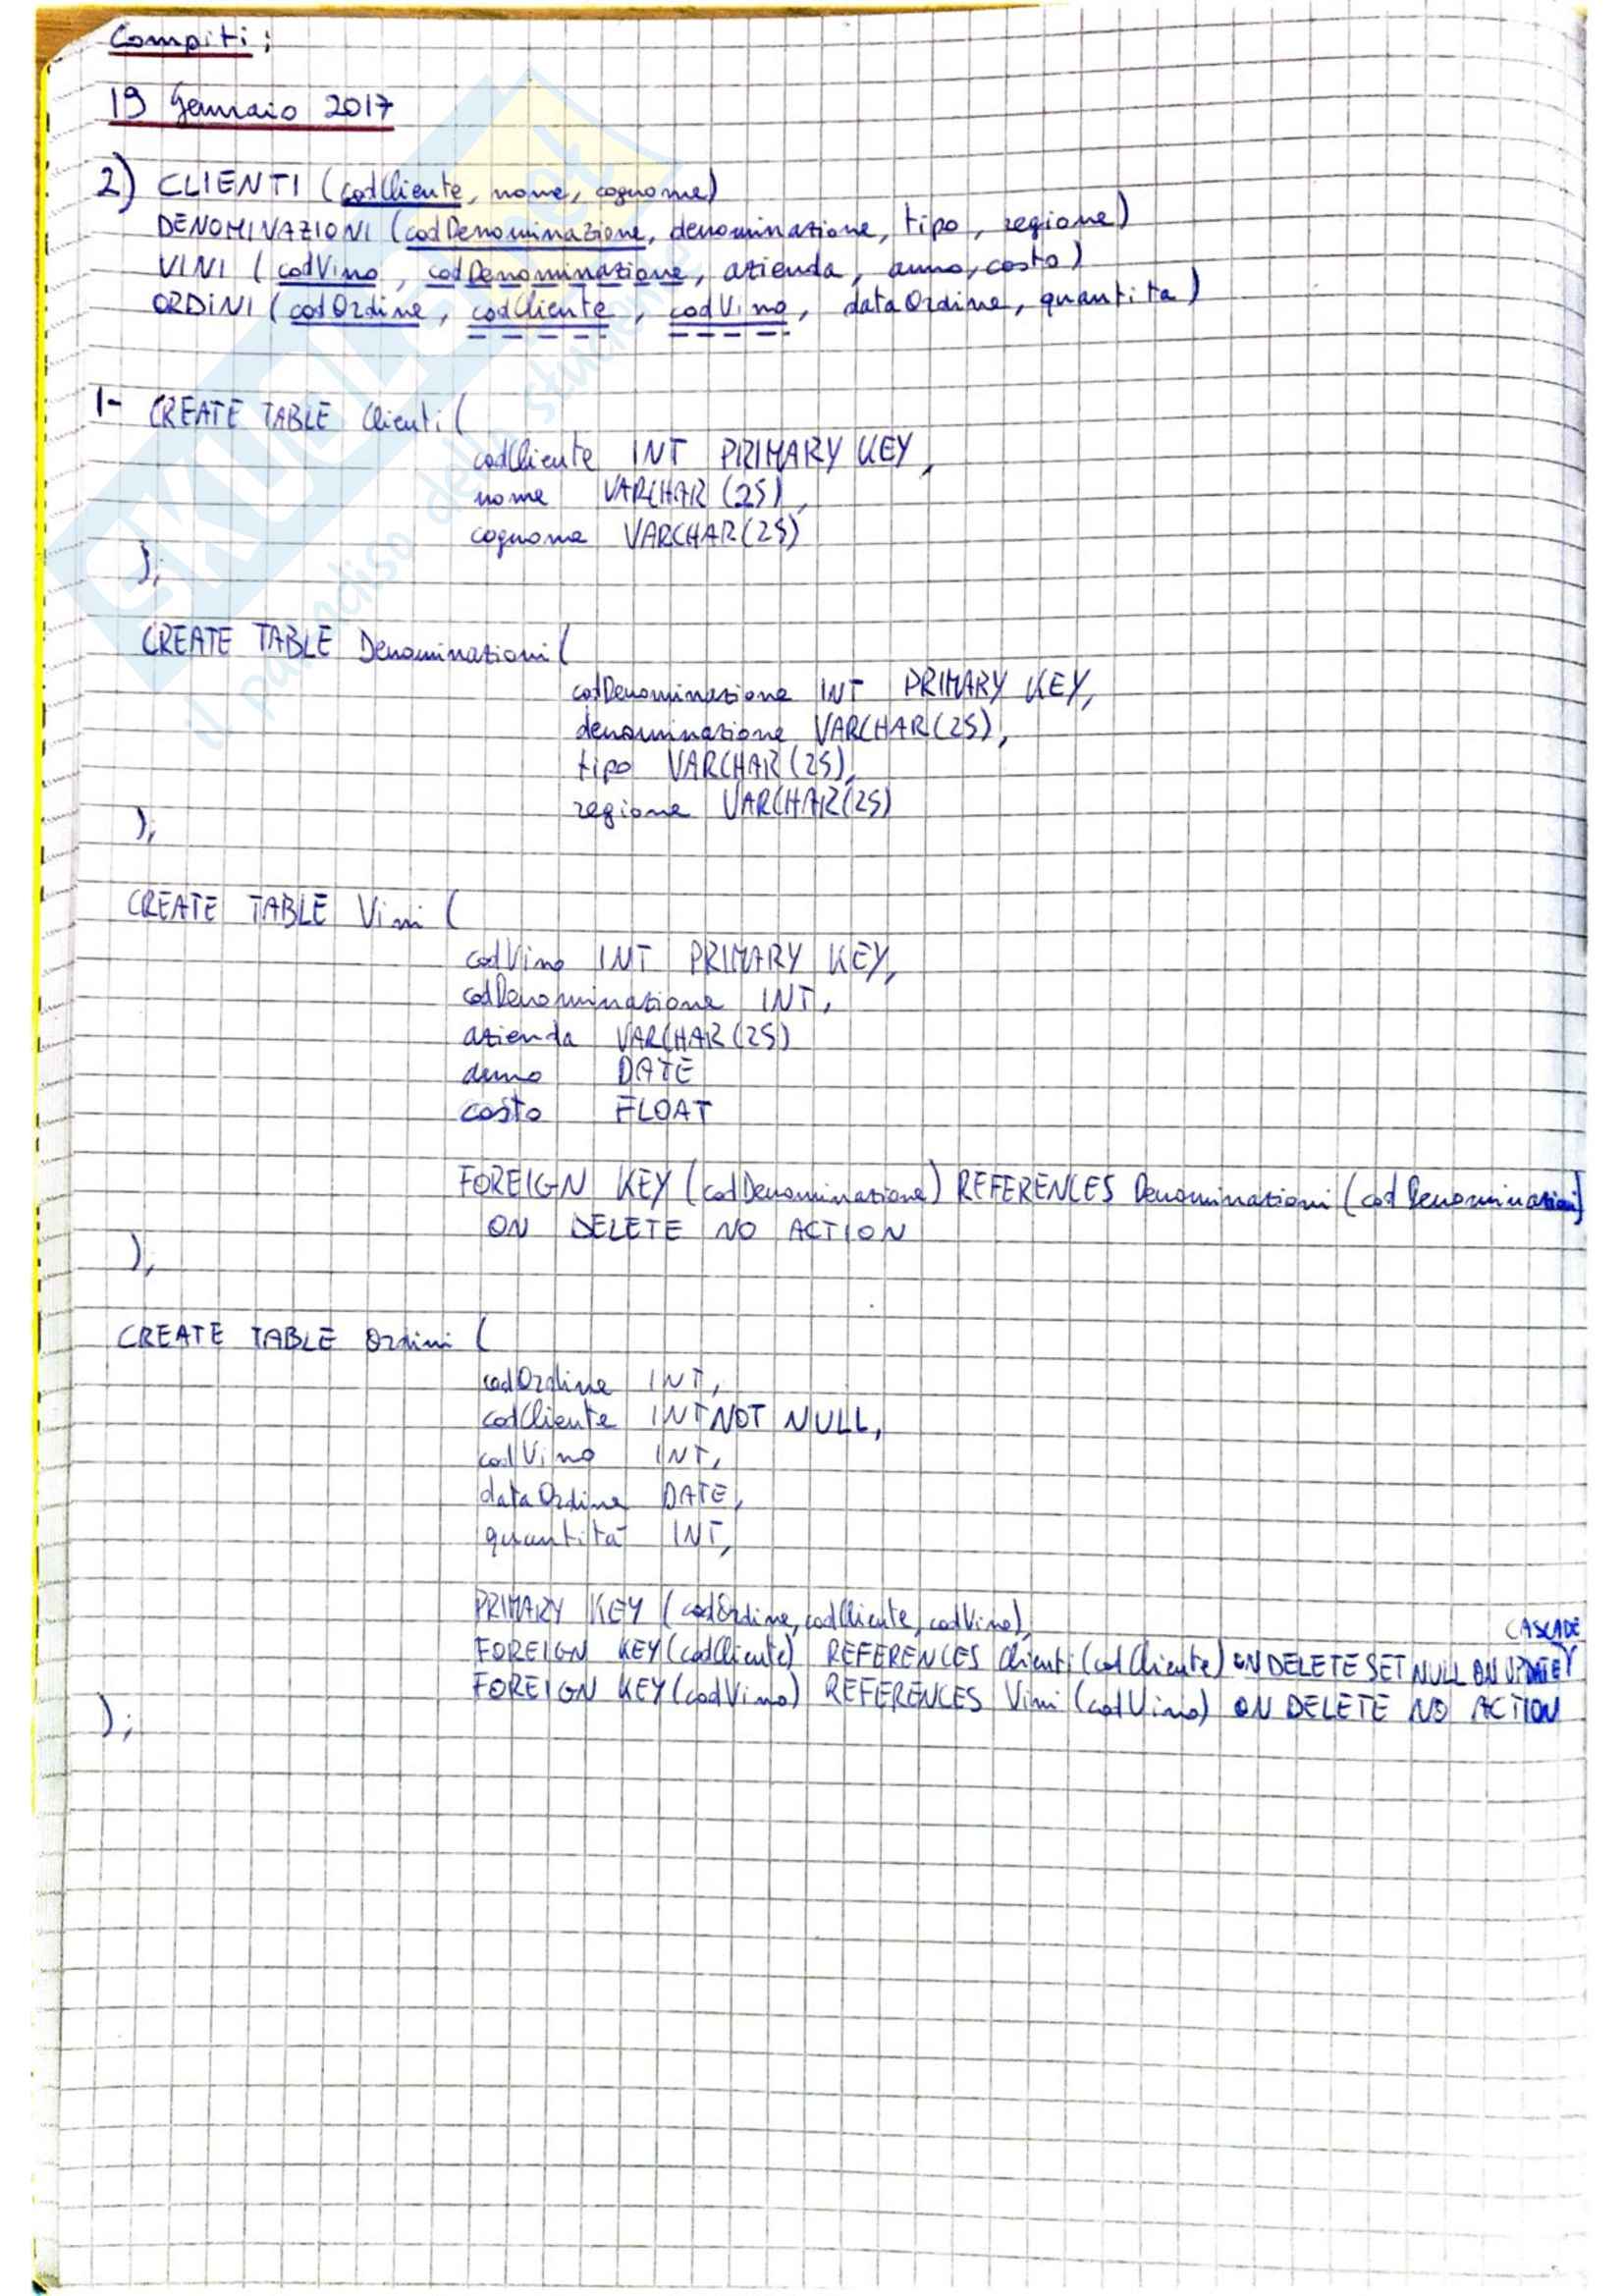 Compiti:
19 Gennaio 2017
2) CLIENTI (codCliente, nome, cognome)
DENOMINAZIONI (codDenominazione, denominazione, tipo, regione)
VINI (codVino, codDenominazione, azienda, anno, costo)
ORDINI (codOrdine, codCliente, codVino, dataOrdine, quantita)
1- CREATE TABLE Clienti (
codCliente INT PRIMARY KEY,
nome VARCHAR (25),
cognome VARCHAR (25)
);
CREATE TABLE Denominazioni (
codDenominazione INT PRIMARY KEY,
denominazione VARCHAR (25),
tipo VARCHAR (25),
regione VARCHAR (25)
);
CREATE TABLE Vini (
codVino INT PRIMARY KEY,
codDenominazione INT,
azienda VARCHAR (25)
anno DATE
costo FLOAT
FOREIGN KEY (codDenominazione) REFERENCES Denominazioni (codDenominazioni)
ON DELETE NO ACTION
);
CREATE TABLE Ordini (
codOrdine INT,
codCliente INT NOT NULL,
codVino INT,
dataOrdine DATE,
quantità INT,
PRIMARY KEY (codOrdine, codCliente, codVino),
CASCADE
FOREIGN KEY (codCliente) REFERENCES Clienti (codCliente) ON DELETE SET NULL ON UPDATE
FOREIGN KEY (codVino) REFERENCES Vini (codVino) ON DELETE NO ACTION
);
SKUOLA.net
il paradiso dello studente